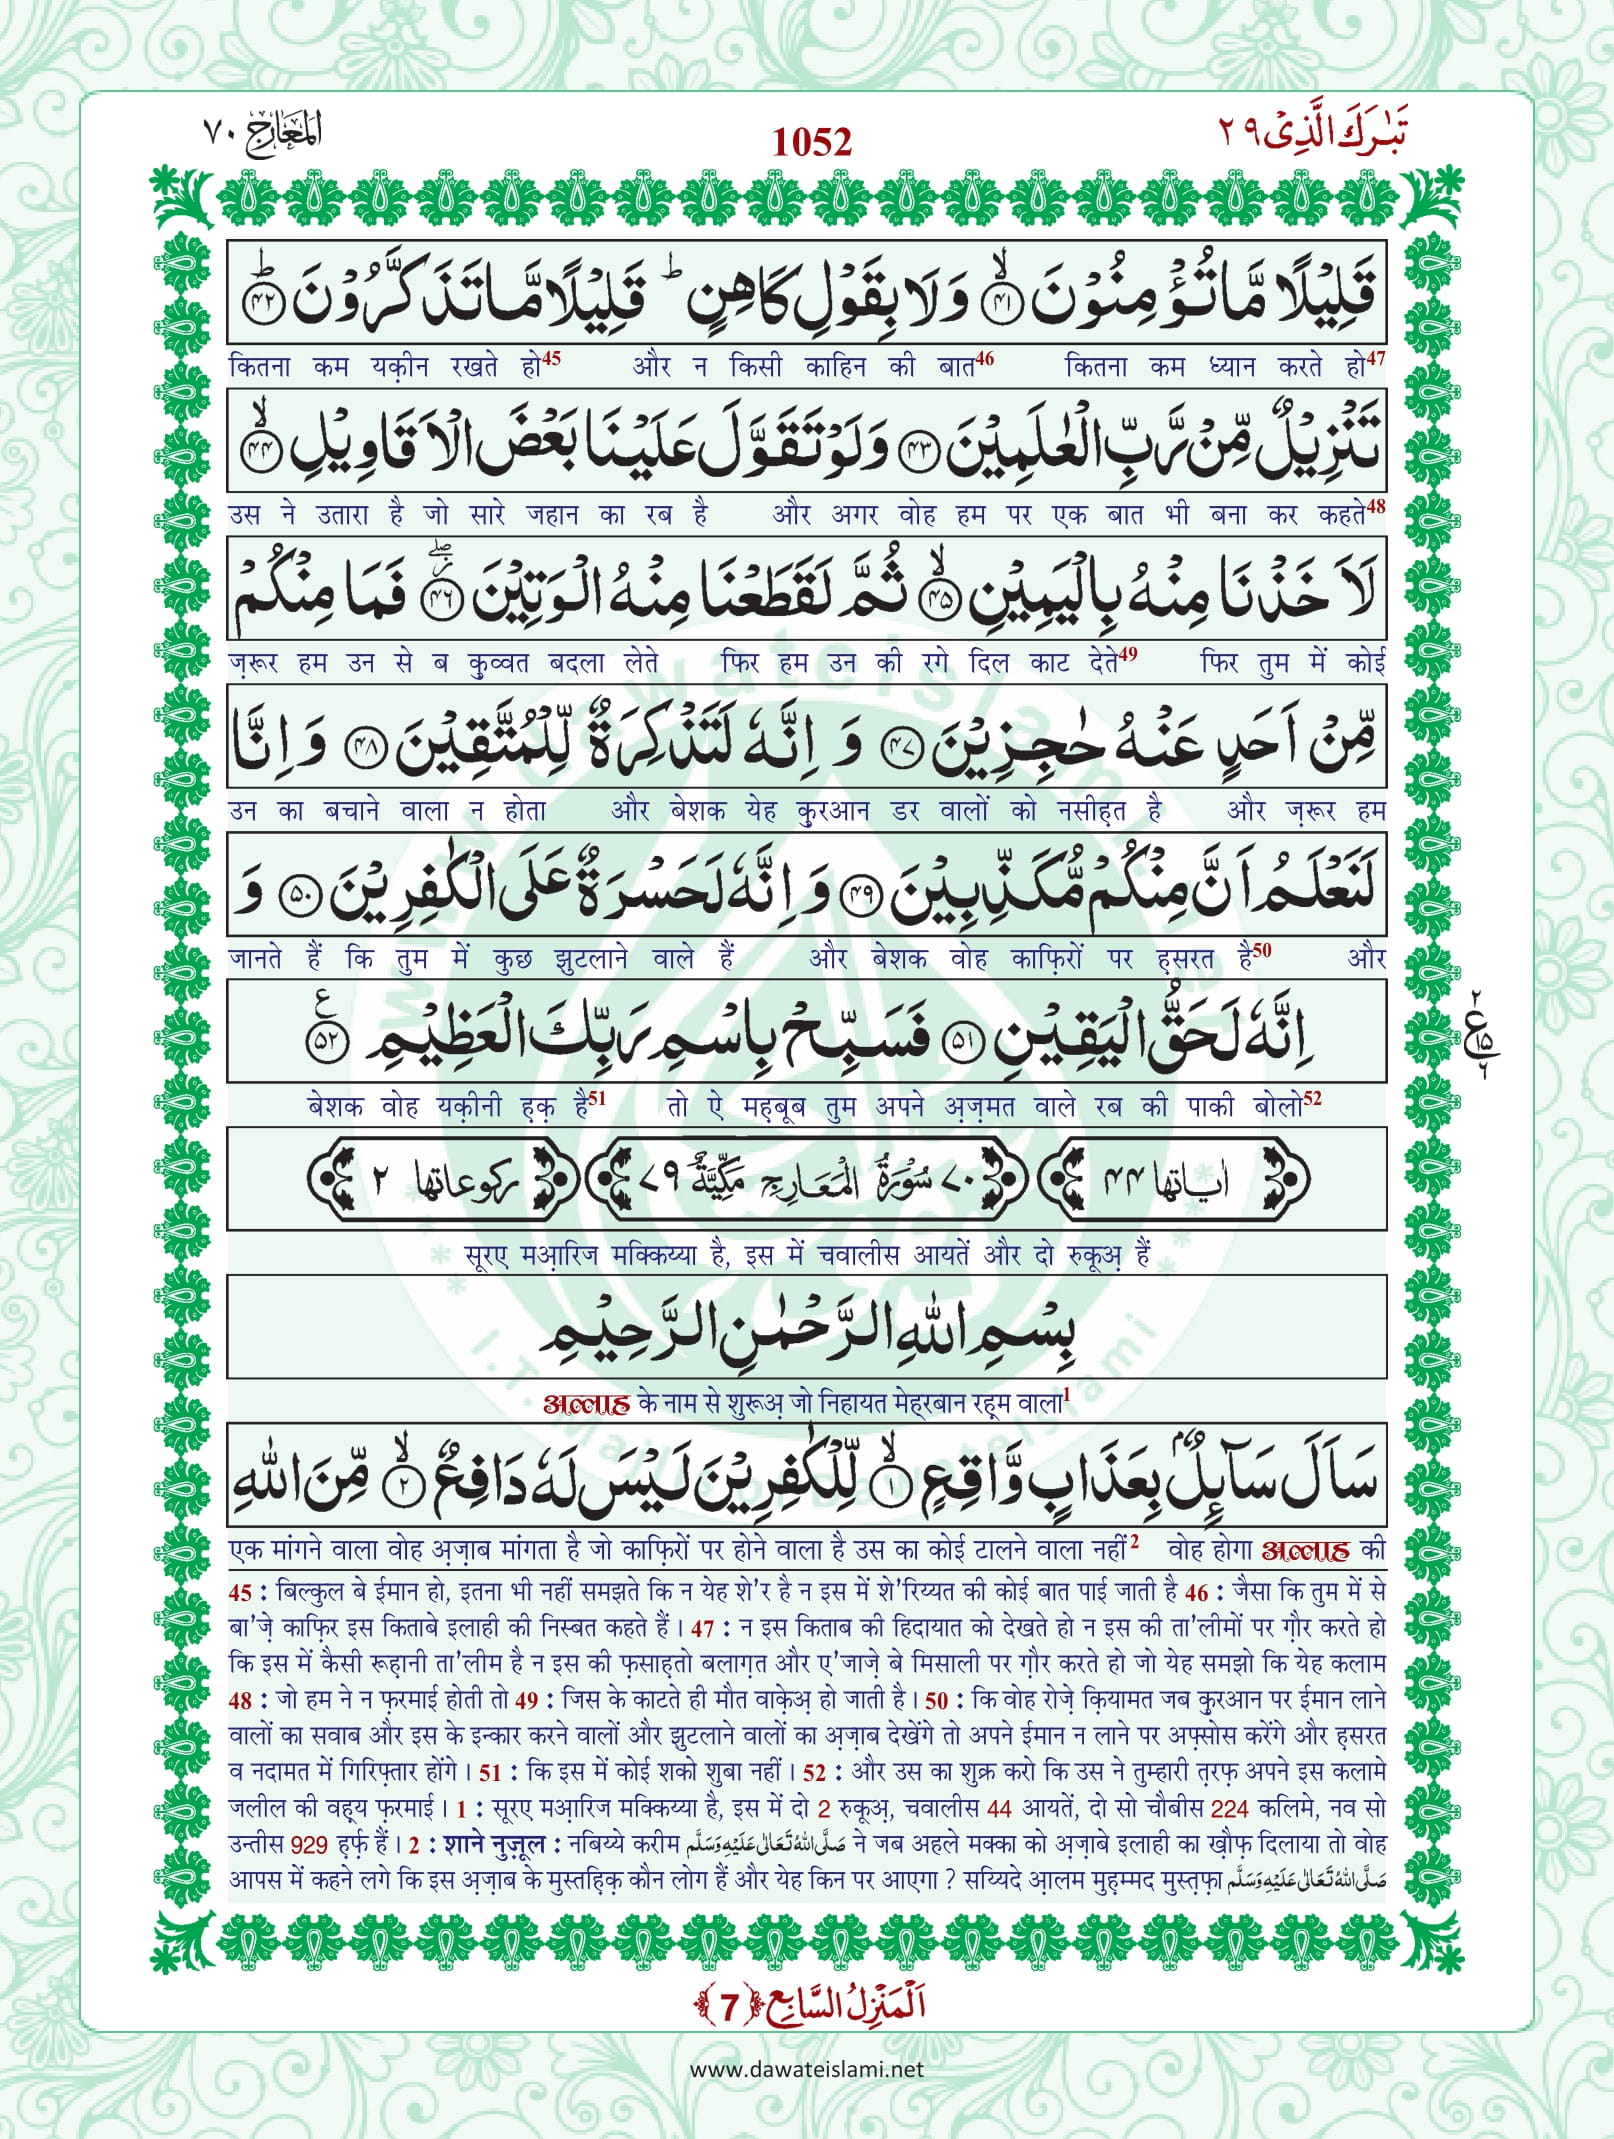 تَبٰرَكَ الَّذِیْ ۲۹
1052
اَلْمَعَارِج ۷۰
قَلِیْلًا مَّا تُؤْمِنُوْنَ ۙ﴿۴۱﴾ وَ لَا بِقَوْلِ كَاهِنٍ ؕ قَلِیْلًا مَّا تَذَكَّرُوْنَ ؕ﴿۴۲﴾
कितना कम यक़ीन रखते हो45 और न किसी काहिन की बात46 कितना कम ध्यान करते हो47
تَنْزِیْلٌ مِّنْ رَّبِّ الْعٰلَمِیْنَ ﴿۴۳﴾ وَ لَوْ تَقَوَّلَ عَلَیْنَا بَعْضَ الْاَقَاوِیْلِ ۙ﴿۴۴﴾
उस ने उतारा है जो सारे जहान का रब है और अगर वोह हम पर एक बात भी बना कर कहते48
لَاَخَذْنَا مِنْهُ بِالْیَمِیْنِ ۙ﴿۴۵﴾ ثُمَّ لَقَطَعْنَا مِنْهُ الْوَتِیْنَ ﴿۴۶﴾ۖ٘ فَمَا مِنْكُمْ
ज़रूर हम उन से ब क़ुव्वत बदला लेते फिर हम उन की रगे दिल काट देते49 फिर तुम में कोई
مِّنْ اَحَدٍ عَنْهُ حٰجِزِیْنَ ﴿۴۷﴾ وَ اِنَّهٗ لَتَذْكِرَةٌ لِّلْمُتَّقِیْنَ ﴿۴۸﴾ وَ اِنَّا
उन का बचाने वाला न होता और बेशक येह क़ुरआन डर वालों को नसीह़त है और ज़रूर हम
لَنَعْلَمُ اَنَّ مِنْكُمْ مُّكَذِّبِیْنَ ﴿۴۹﴾ وَ اِنَّهٗ لَحَسْرَةٌ عَلَى الْكٰفِرِیْنَ ﴿۵۰﴾ وَ
जानते हैं कि तुम में कुछ झुटलाने वाले हैं और बेशक वोह काफ़िरों पर ह़सरत है50 और
اِنَّهٗ لَحَقُّ الْیَقِیْنِ ﴿۵۱﴾ فَسَبِّحْ بِاسْمِ رَبِّكَ الْعَظِیْمِ ﴿۵۲﴾ ع
۲ ع ۱۵ ٦
बेशक वोह यक़ीनी ह़क़ है51 तो ऐ मह़बूब तुम अपने अ़ज़मत वाले रब की पाकी बोलो52
اٰیاتها ۴۴ ۷۰ سُوْرَةُ الْمَعَارِجِ مَكِّیَّةٌ ۷۹ ركوعاتها ۲
सूरए मआ़रिज मक्किय्या है, इस में चवालीस आयतें और दो रुकूअ़ हैं
بِسْمِ اللّٰهِ الرَّحْمٰنِ الرَّحِیْمِ
अल्लाह के नाम से शुरूअ़ जो निहायत मेह्रबान रह़्म वाला1
سَاَلَ سَآىِٕلٌۢ بِعَذَابٍ وَّاقِعٍ ۙ﴿۱﴾ لِّلْكٰفِرِیْنَ لَیْسَ لَهٗ دَافِعٌ ۙ﴿۲﴾ مِّنَ اللّٰهِ
एक मांगने वाला वोह अ़ज़ाब मांगता है जो काफ़िरों पर होने वाला है उस का कोई टालने वाला नहीं2 वोह होगा अल्लाह की
45 : बिल्कुल बे ईमान हो, इतना भी नहीं समझते कि न येह शे'र है न इस में शे'रिय्यत की कोई बात पाई जाती है 46 : जैसा कि तुम में से
बा'ज़े काफ़िर इस किताबे इलाही की निस्बत कहते हैं। 47 : न इस किताब की हिदायात को देखते हो न इस की ता'लीमों पर ग़ौर करते हो
कि इस में कैसी रूह़ानी ता'लीम है न इस की फ़साह़तो बलाग़त और ए'जाज़े बे मिसाली पर ग़ौर करते हो जो येह समझो कि येह कलाम
48 : जो हम ने न फ़रमाई होती तो 49 : जिस के काटते ही मौत वाक़ेअ़ हो जाती है। 50 : कि वोह रोज़े क़ियामत जब क़ुरआन पर ईमान लाने
वालों का सवाब और इस के इन्कार करने वालों और झुटलाने वालों का अ़ज़ाब देखेंगे तो अपने ईमान न लाने पर अफ़्सोस करेंगे और ह़सरत
व नदामत में गिरिफ़्तार होंगे। 51 : कि इस में कोई शको शुबा नहीं। 52 : और उस का शुक्र करो कि उस ने तुम्हारी त़रफ़ अपने इस कलामे
जलील की वह़्य फ़रमाई। 1 : सूरए मआ़रिज मक्किय्या है, इस में दो 2 रुकूअ़, चवालीस 44 आयतें, दो सो चौबीस 224 कलिमे, नव सो
उन्तीस 929 ह़र्फ़ हैं। 2 : शाने नुज़ूल : नबिय्ये करीम صَلَّى اللّٰهُ تَعَالٰى عَلَیْهِ وَسَلَّم ने जब अहले मक्का को अ़ज़ाबे इलाही का ख़ौफ़ दिलाया तो वोह
आपस में कहने लगे कि इस अ़ज़ाब के मुस्तह़िक़ कौन लोग हैं और येह किन पर आएगा ? सय्यिदे आ़लम मुह़म्मद मुस्त़फ़ा صَلَّى اللّٰهُ تَعَالٰى عَلَیْهِ وَسَلَّم
اَلْمَنْزِلُ السَّابِع ﴿7﴾
www.dawateislami.net